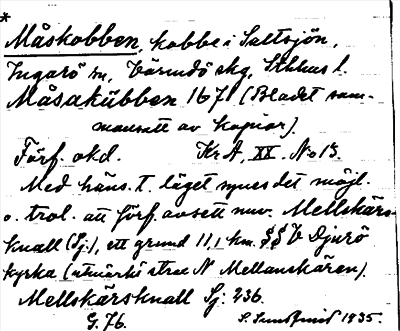 *
Måskobben, kobbe i Saltsjön,
Ingarö sn, Värmdö skg, Sthlms l.
Måsakübben 1671 (Bladet sam-
mansatt av kopior).
Förf. okd. KrA, XX. No 13.
Med häns. t. läget synes det möjl.
o. trol. att förf. avsett nuv. Mellskärs-
knall (Sj.), ett grund 11,1 km. SSV Djurö
kyrka (utmärkt strax N Mellanskären).
Mellskärsknall Sj. 236.
G. 76. S. 1935.